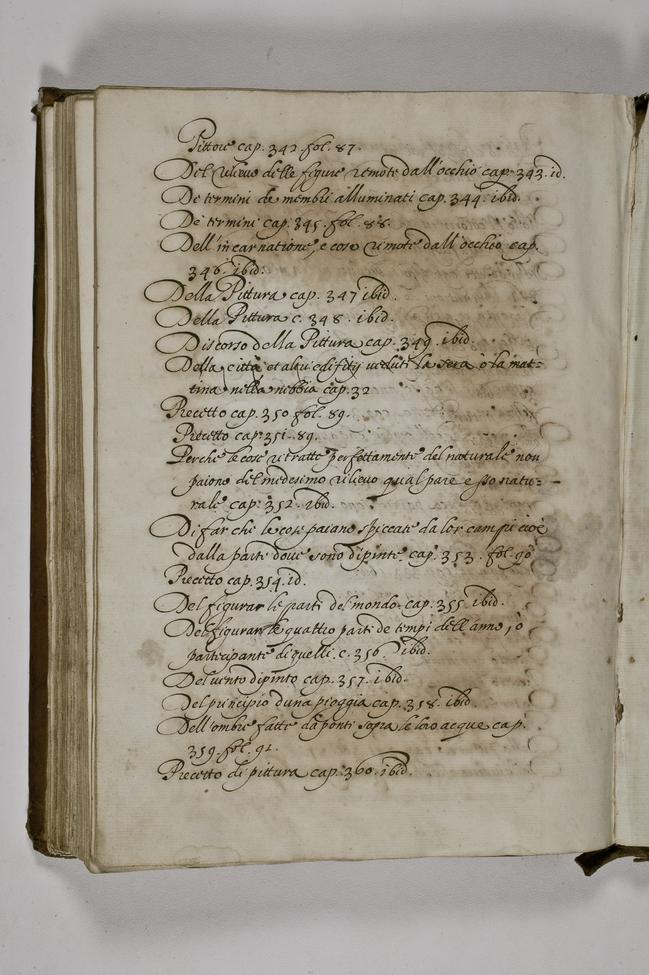 Pittore cap. 342. fol. 87.
Del rilievo delle figure remote dall'occhio cap. 343. id.
De termini de membri alluminati cap. 344. ibid.
De termini cap. 345. fol. 88.
Dell'incarnatione, e cose remote dall'occhio cap.
346. ibid.
Della Pittura cap. 347 ibid.
Della Pittura c. 348. ibid.
Discorso della Pittura cap. 349. ibid.
Della città et altri edifitij veduti la sera o la mat=
tina nella nebbia cap. 32
Precetto cap. 350 fol. 89.
Precetto cap. 351. 89.
Perche le cose ritratte perfettamente del naturale non
paiono del medesimo rilievo qual pare esso natu=
rale cap. 352. ibid.
Di far che le cose paiano spiccate da lor campi cioè
dalla parte dove sono dipinte. cap. 353. fol. 90
Precetto cap. 354. id.
Del figurar le parti del mondo. cap. 355. ibid.
Del figurar le quattro parti de tempi dell'anno, o
partecipante di quelli. c. 356. ibid.
Del vento dipinto cap. 357. ibid.
Del principio d'una pioggia cap. 358. ibid
Dell'ombre fatte da ponti sopra le loro acque cap.
359. fol. 91.
Precetto di pittura cap. 360. ibid.